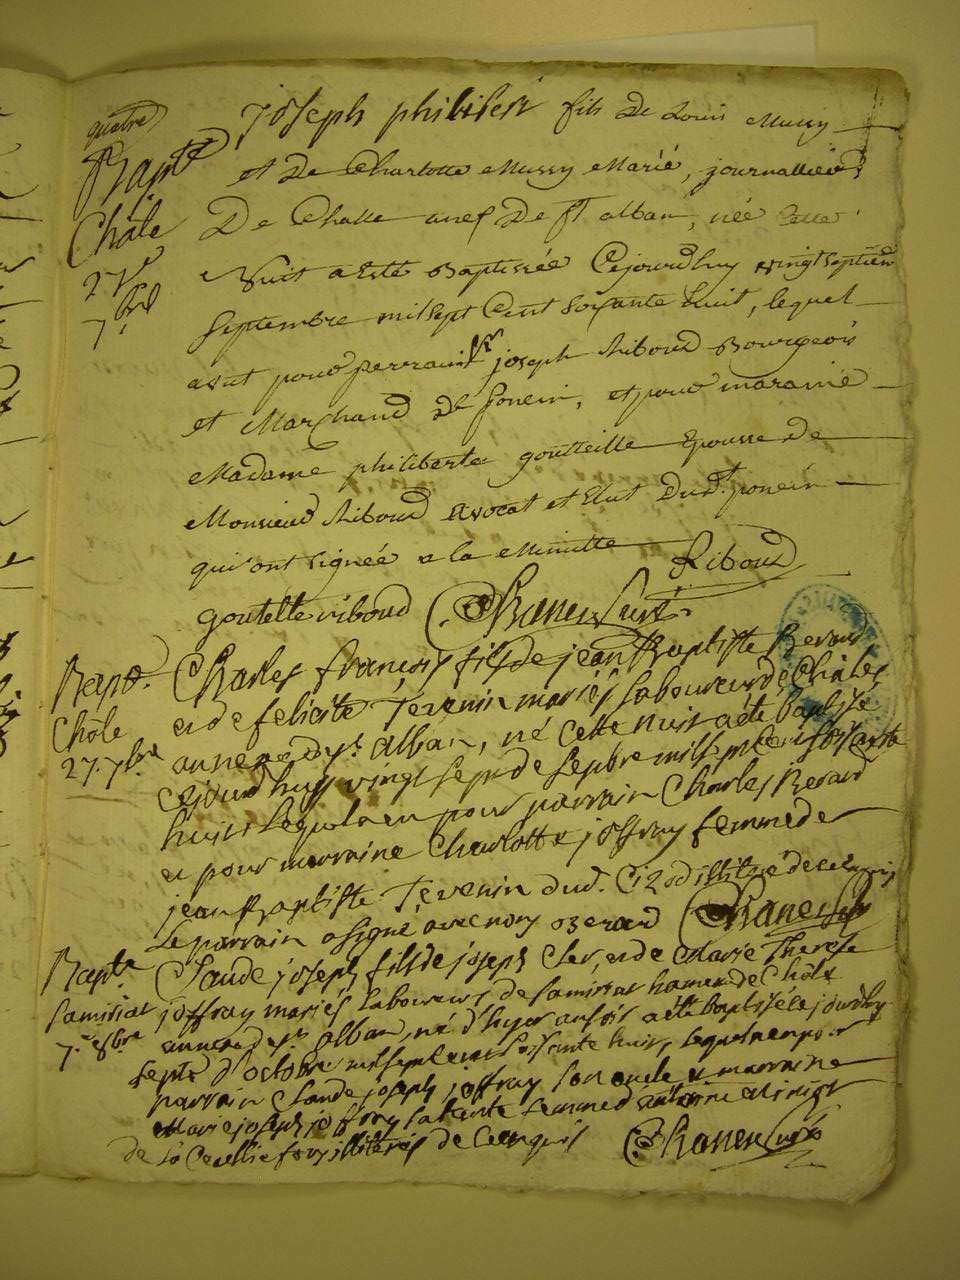 quatre
Bapte
Châle
27e
7bre
joseph philibert fils de Louis Mussy
et De Charlotte Mussy Marié, journallier
De Challe anex De st alban, née cette
Nuit a Esté Baptissée Cejourdhuy vingtseptiem
Septembre mil sept Cent soixante huit, lequel
a eut pour perrain Sr joseph Riboud Bourgeois
et Marchand de Poncin, et pour maraine
Madame philiberte goutteille Epousse de
Monsieur Riboud avocat et Elut Dudt. poncin
qui ont signée a la Minutte Riboud
goutelle riboud
Bapte.
Châle
27. 7bre
Charles françois fils de jean Baptiste Berard
et de felicité Tevenin mariés laboureurs de Châles
annexe de st. alban, né cette nuit a été baptisé
cejourd'huy vingt sept de sepbre mil sept cent soixante
huit lequel a eu pour parrain Charles Berard
et pour marraine Charlotte joffray femme de
jean Baptiste Tevenin dud. illitré de ce enquis
Le parrain a signé avec nous Berard
Bapte
Samiriat
7.e 8bre
Claude joseph fils de joseph Cler, et de Marie Therese
joffray mariés laboureurs de Samiriat hameau de Châle
annexe de st alban, né d'hyer au soir a été baptisé cejourdhuy
sept d'octobre mil sept cent soissante huit, lequel a eu pour
parrain Claude joseph joffray son oncle et marraine
Marie joseph joffray sa tante femme d'antoine
de la illiterés de ce enquis